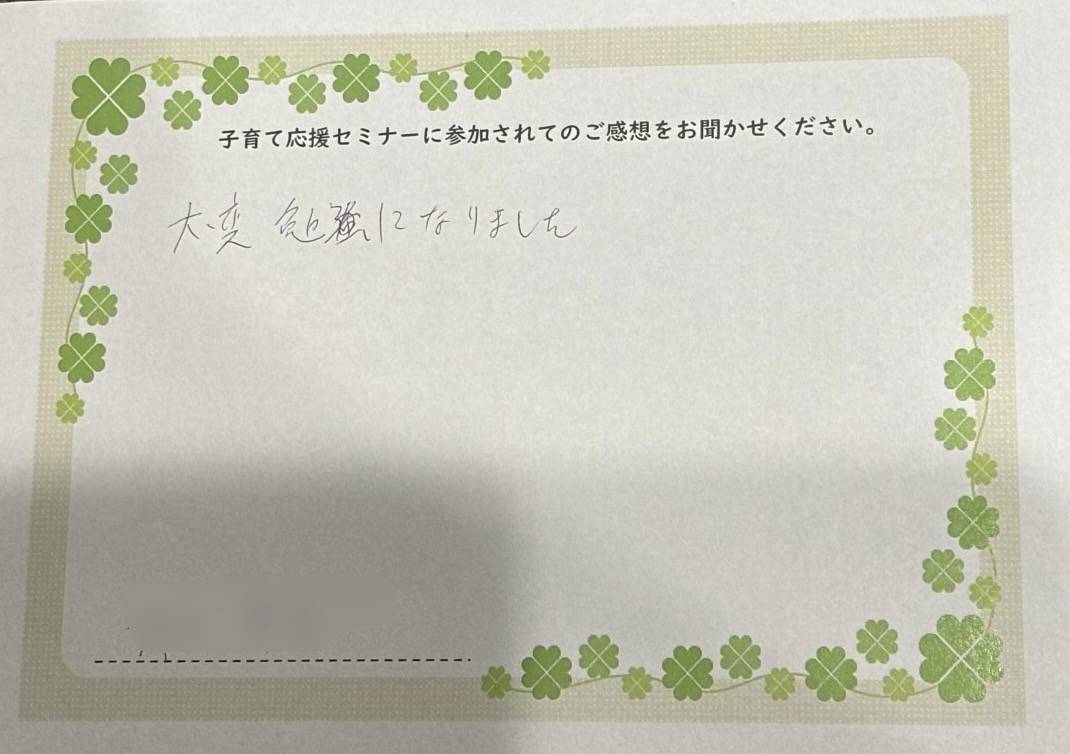 子育て応援セミナーに参加されてのご感想をお聞かせください。
大変 勉強になりました